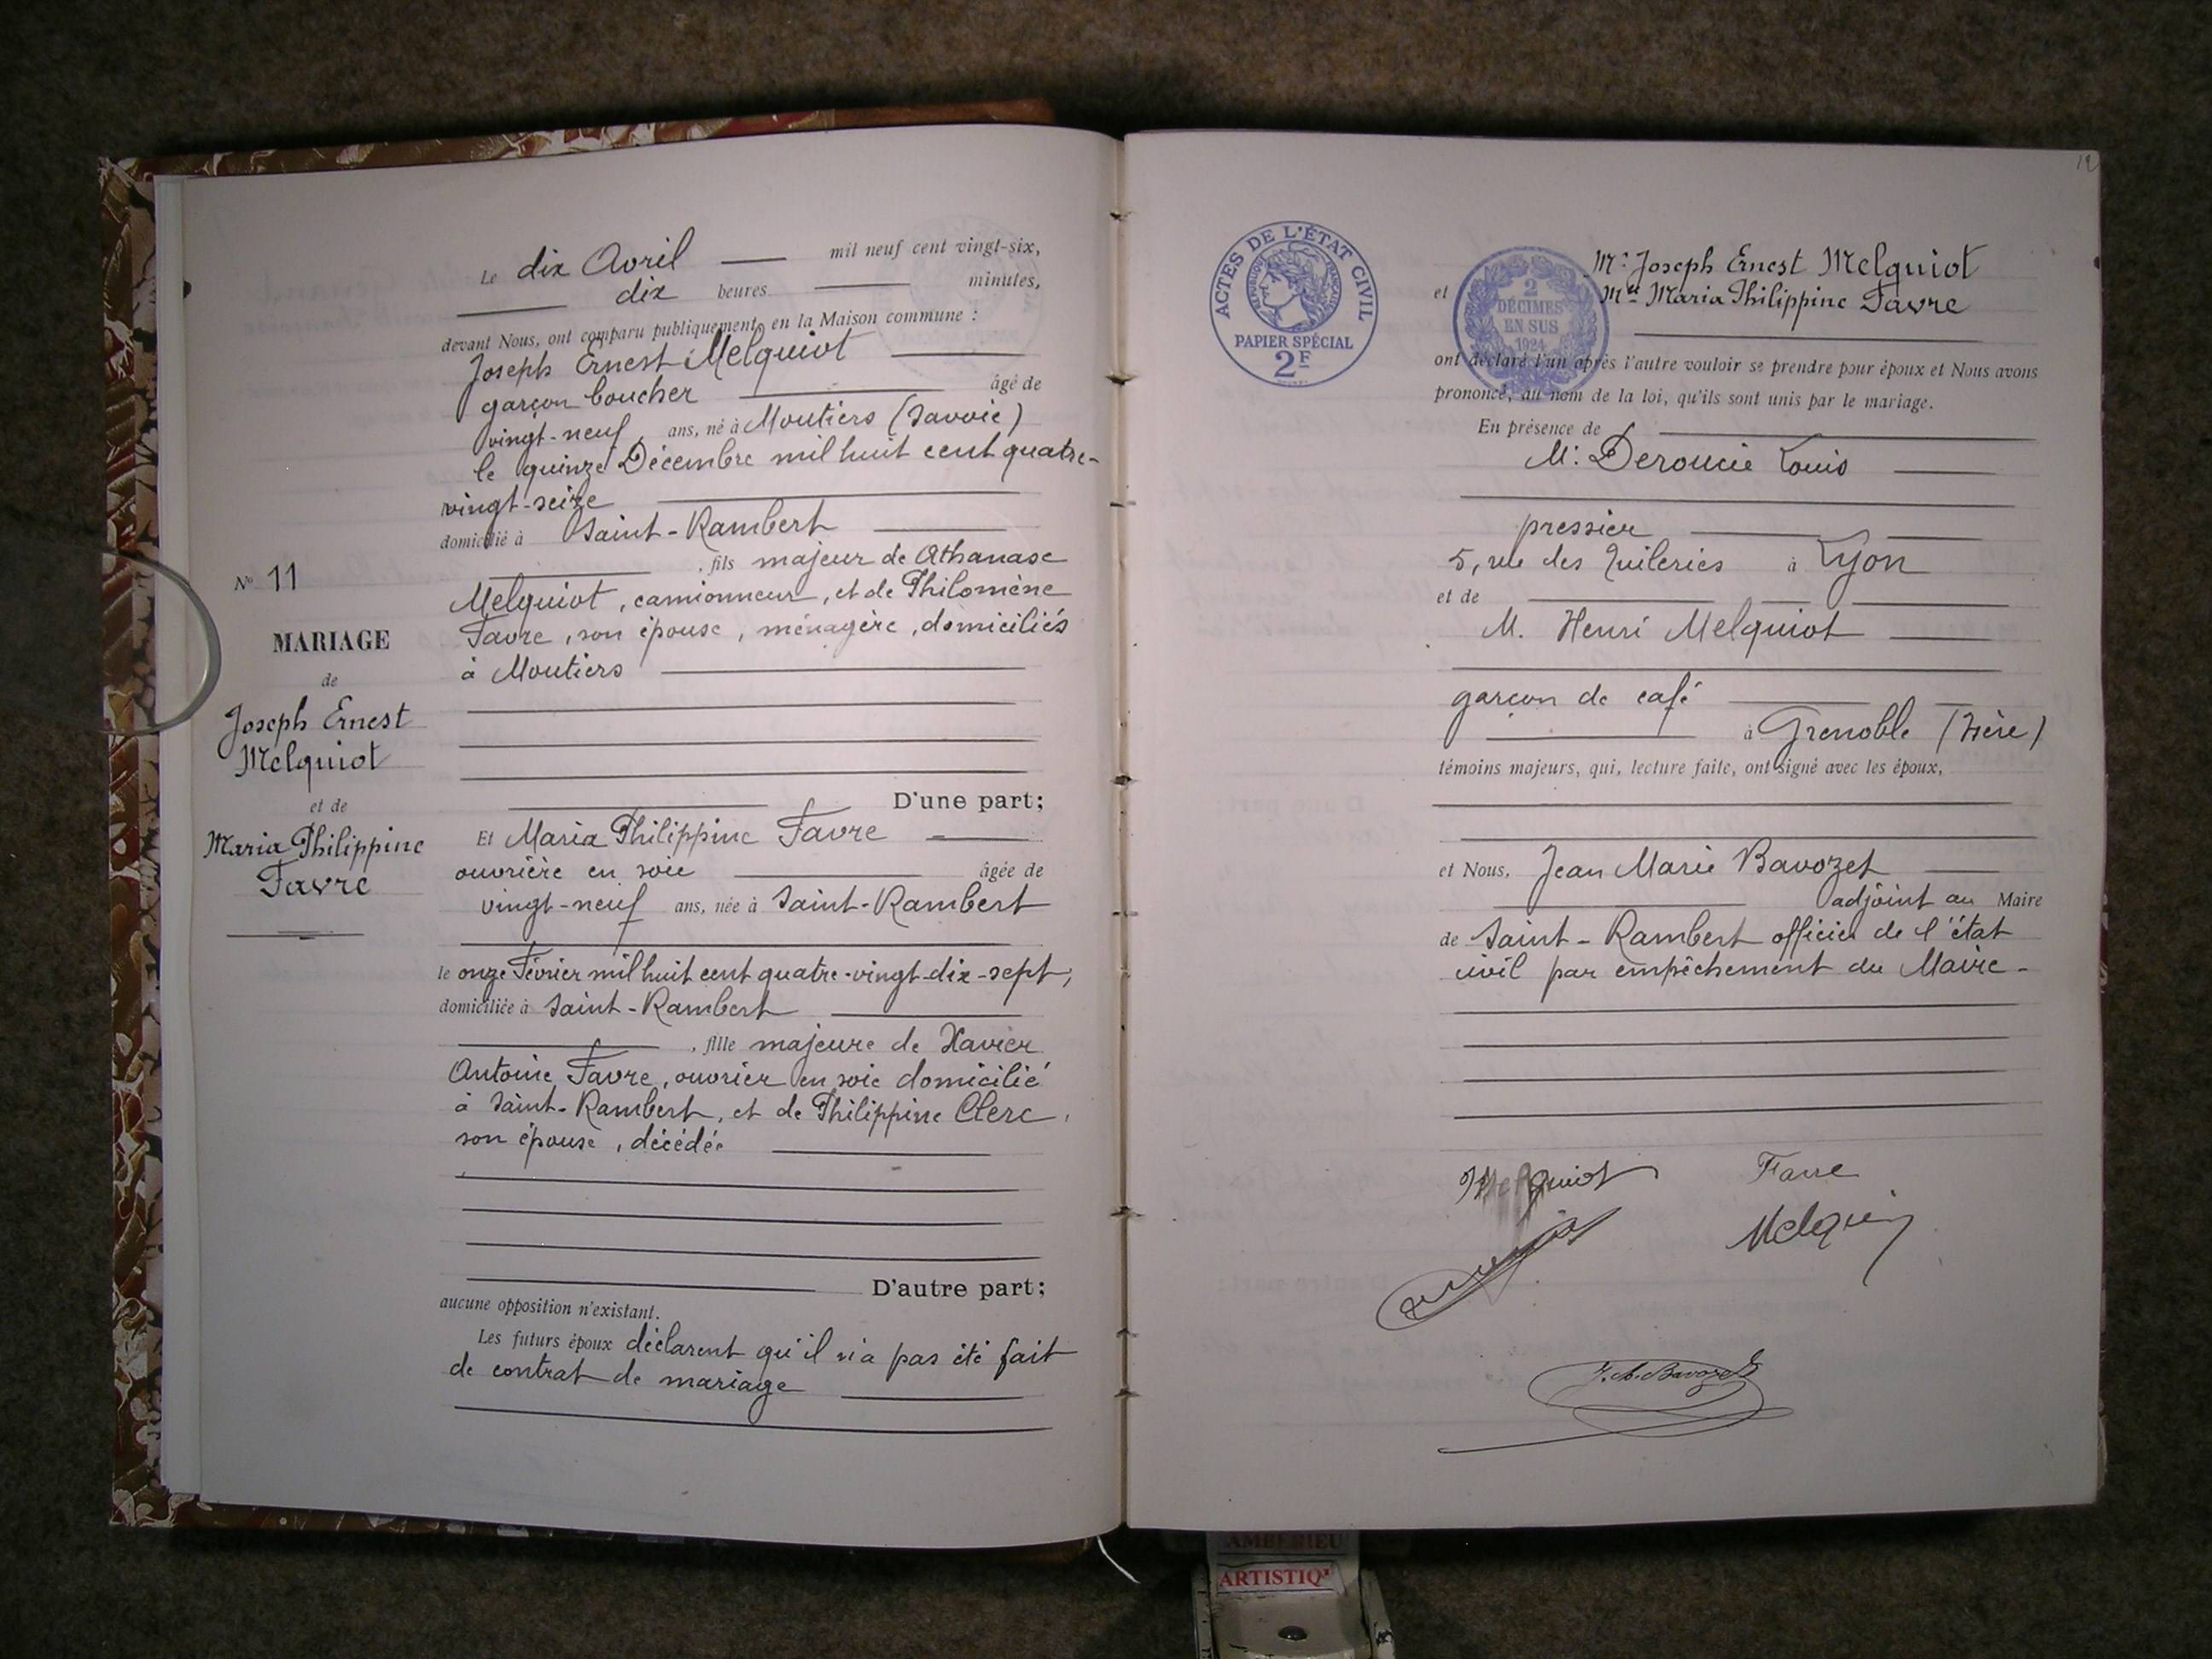 Le dix Avril mil neuf cent vingt-six,
dix heures minutes,
devant Nous, ont comparu publiquement en la Maison commune :
Joseph Ernest Melquiot
garçon boucher âgé de
vingt-neuf ans, né à Moutiers (Savoie)
le quinze Décembre mil huit cent quatre-
vingt-seize
domicilié à Saint-Rambert
, fils majeur de Athanase
Melquiot, camionneur, et de Philomène
Favre, son épouse, ménagère, domiciliés
à Moutiers
D'une part;
Et Maria Philippine Favre
ouvrière en soie âgée de
vingt-neuf ans, née à Saint-Rambert
le onze Février mil huit cent quatre-vingt-dix-sept,
domiciliée à Saint-Rambert
, fille majeure de Xavier
Antoine Favre, ouvrier en soie domicilié
à Saint-Rambert, et de Philippine Clerc,
son épouse, décédée
D'autre part;
aucune opposition n'existant.
Les futurs époux déclarent qu'il n'a pas été fait
de contrat de mariage
N° 11
MARIAGE
de
Joseph Ernest
Melquiot
et de
Maria Philippine
Favre
12
ACTES DE L'ÉTAT CIVIL
RÉPUBLIQUE FRANÇAISE
PAPIER SPÉCIAL
2F
2
DÉCIMES
EN SUS
1924
Mr Joseph Ernest Melquiot
et Mlle Maria Philippine Favre
ont déclaré l'un après l'autre vouloir se prendre pour époux et Nous avons
prononcé, au nom de la loi, qu'ils sont unis par le mariage.
En présence de
Mr Deroucie Louis
pressier
5, rue des Tuileries à Lyon
et de
M. Henri Melquiot
garçon de café
à Grenoble (Isère)
témoins majeurs, qui, lecture faite, ont signé avec les époux,
et Nous, Jean Marie Bavozet
adjoint au Maire
de Saint-Rambert officier de l'état
civil par empêchement du Maire-
Melquiot Favre
Melquiot
J. M. Bavozet
AMBERIEU
ARTISTIQ